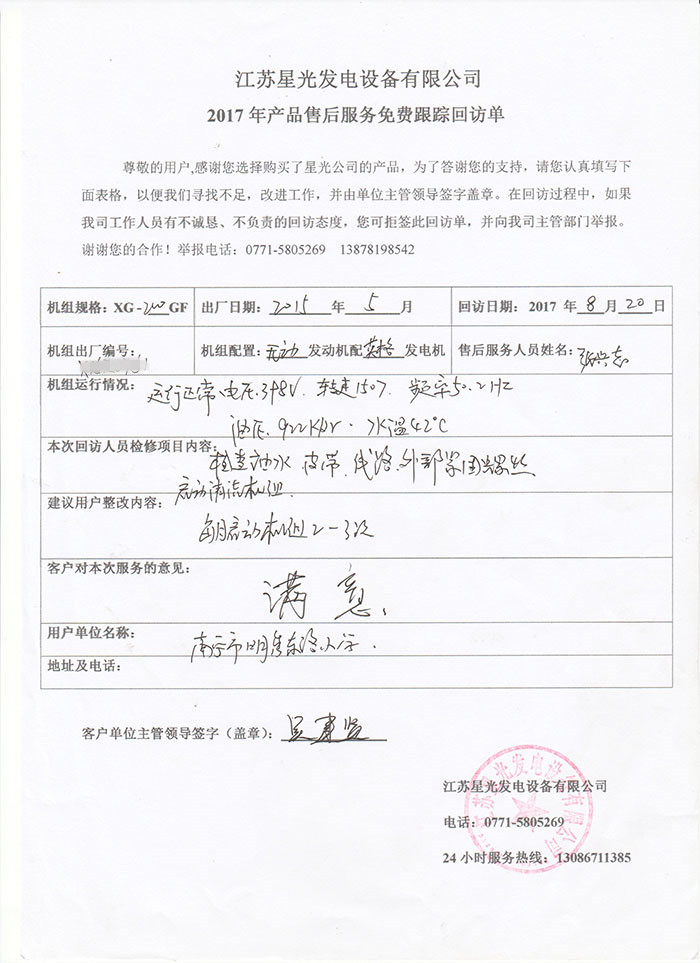 江苏星光发电设备有限公司
2017 年产品售后服务免费跟踪回访单
尊敬的用户,感谢您选择购买了星光公司的产品，为了答谢您的支持，请您认真填写下
面表格，以便我们寻找不足，改进工作，并由单位主管领导签字盖章。在回访过程中，如果
我司工作人员有不诚恳、不负责的回访态度，您可拒签此回访单，并向我司主管部门举报。
谢谢您的合作！举报电话：0771-5805269 13878198542
机组规格：XG-200GF 出厂日期：2015 年 5 月 回访日期：2017 年 8 月 20 日
机组出厂编号： 机组配置：无动 发动机配 英格 发电机 售后服务人员姓名：
机组运行情况：运行正常、电压398V、转速1507、频率50.2HZ
油压、922Kpr、水温42°C
本次回访人员检修项目内容：检查油水、皮带、线路、外部紧固螺丝
启动清流机组、
建议用户整改内容：
每月启动机组2-3次
客户对本次服务的意见：
满意、
用户单位名称：南宁市明秀东路小学、
地址及电话：
客户单位主管领导签字（盖章）：
江苏星光发电设备有限公司
电话：0771-5805269
24 小时服务热线：13086711385
江苏星光发电设备有限公司